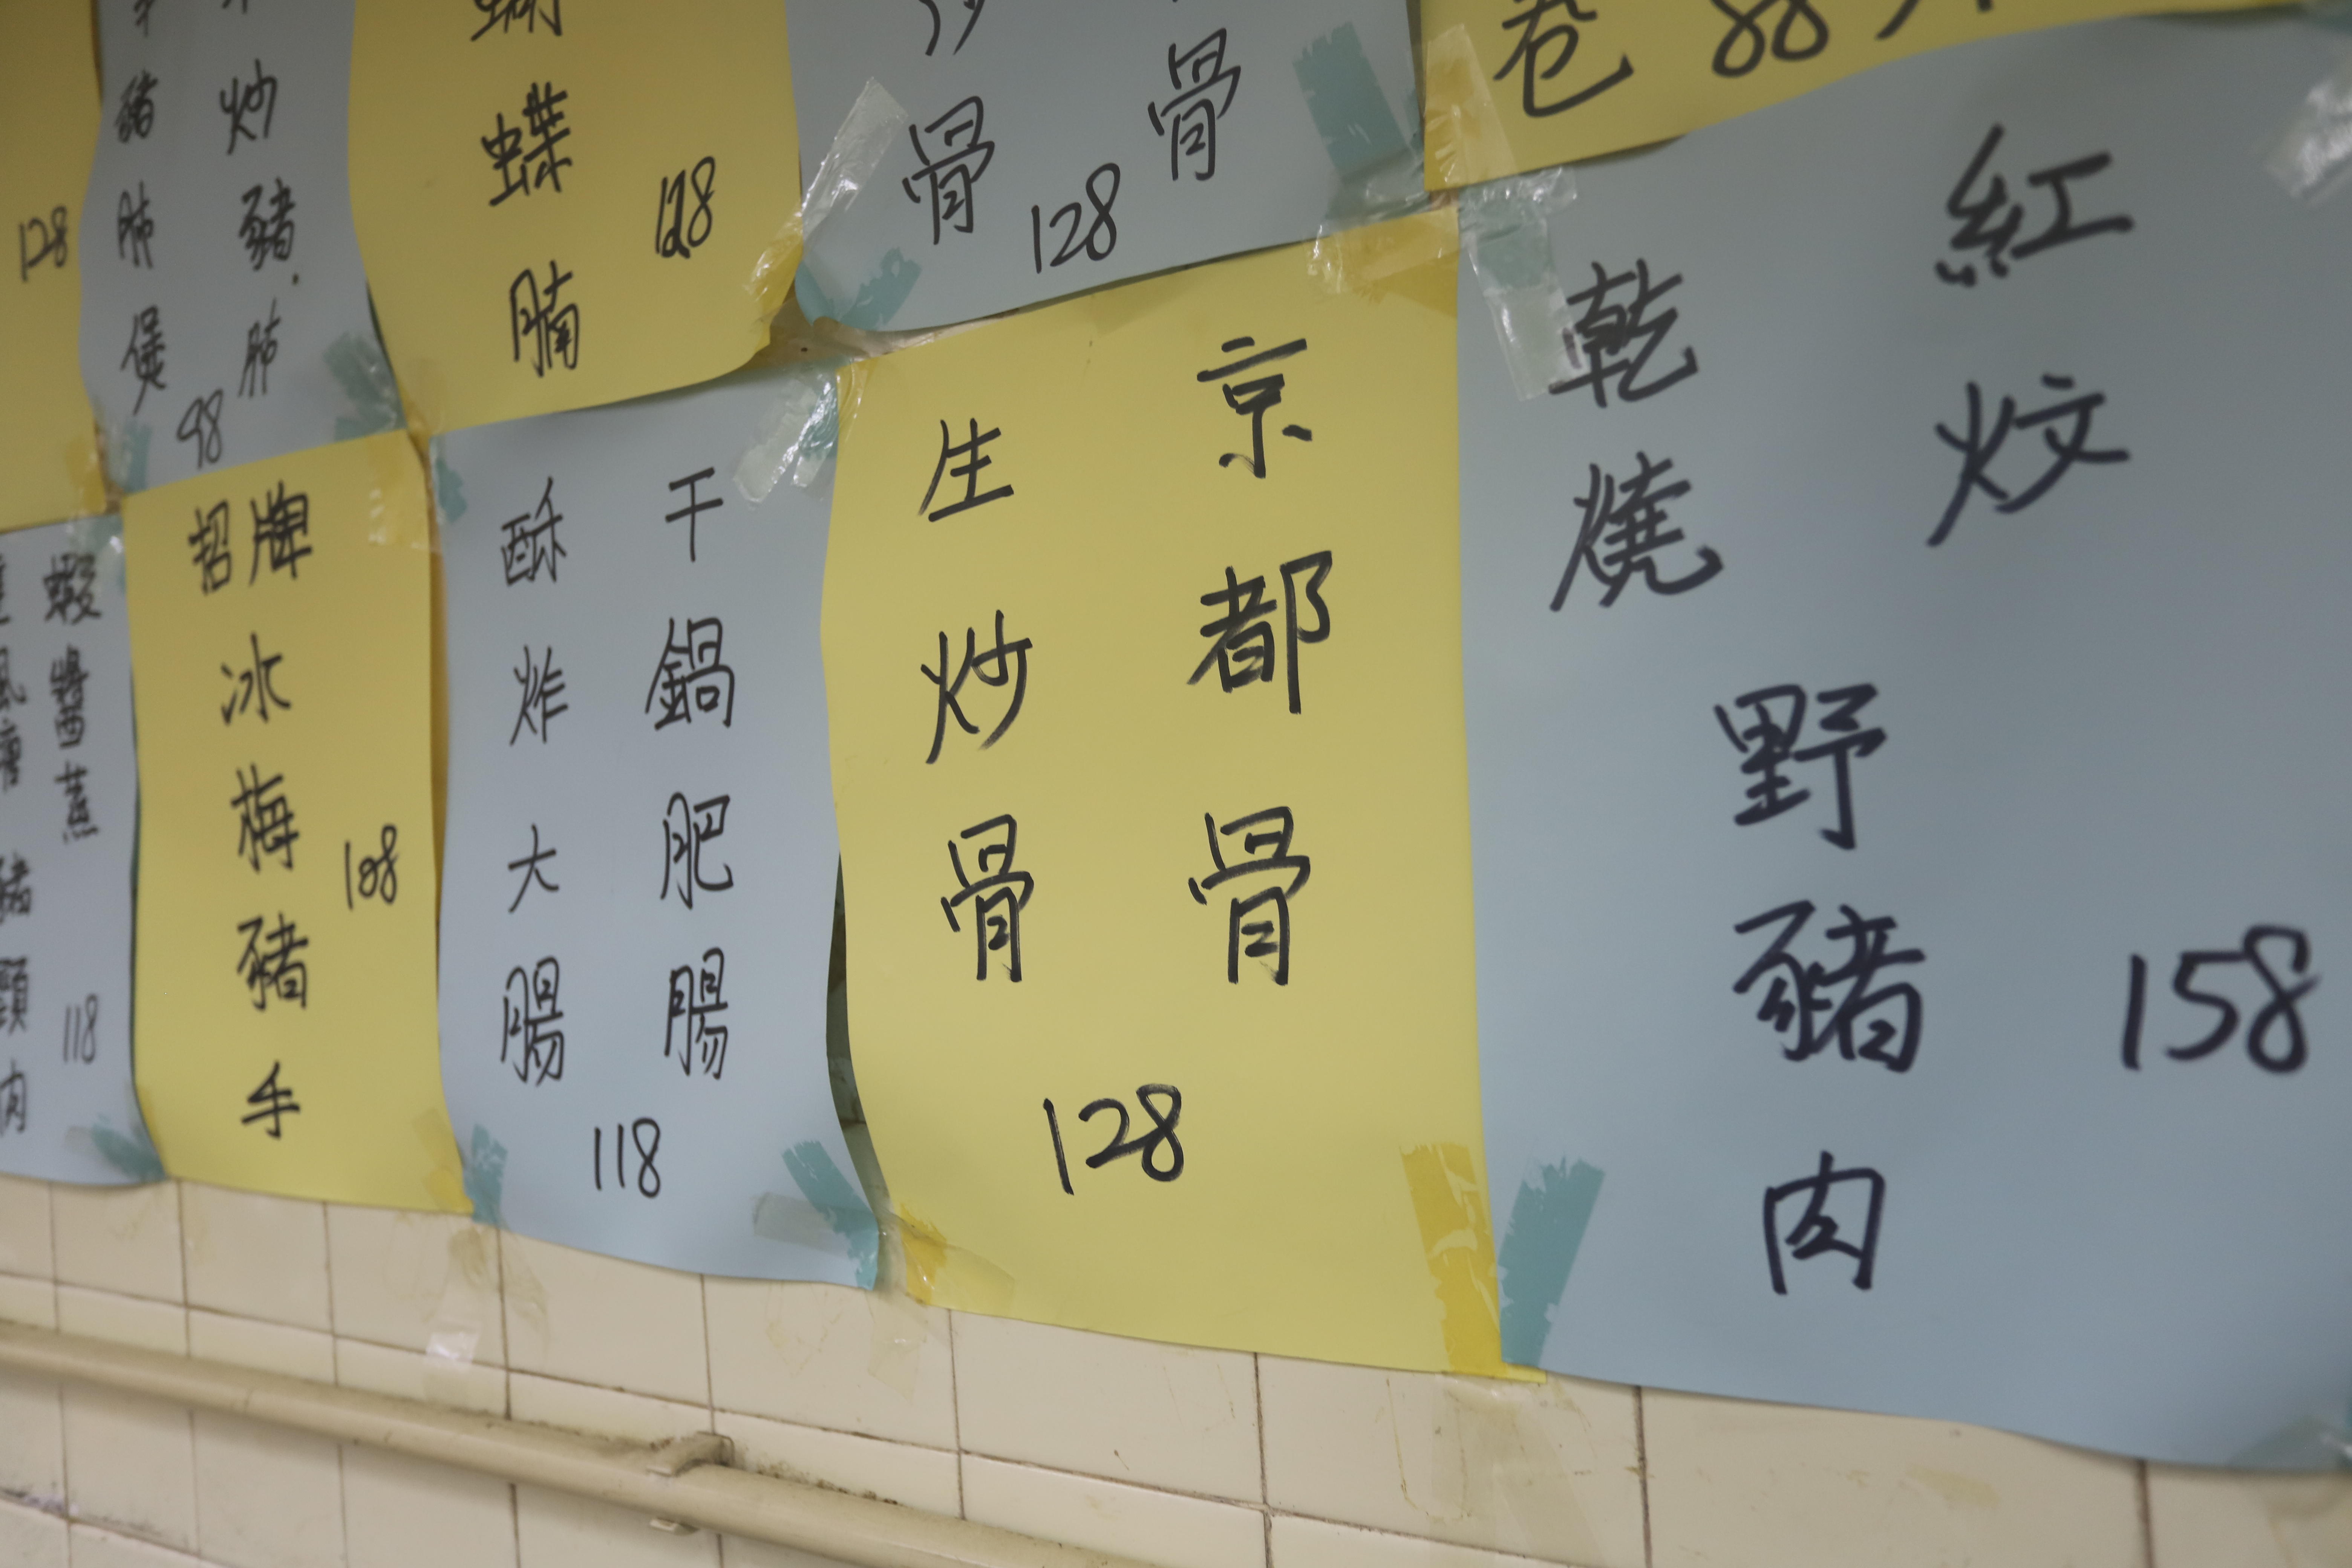 128
炒豬肺
豬肺煲
98
蝶腩
128
骨
骨
128
卷 88
蝦醬蕉
豬頸肉
118
招牌
冰梅豬手
108
干鍋肥腸
酥炸大腸
118
京都骨
生炒骨
128
紅炆
乾燒
野豬肉
158